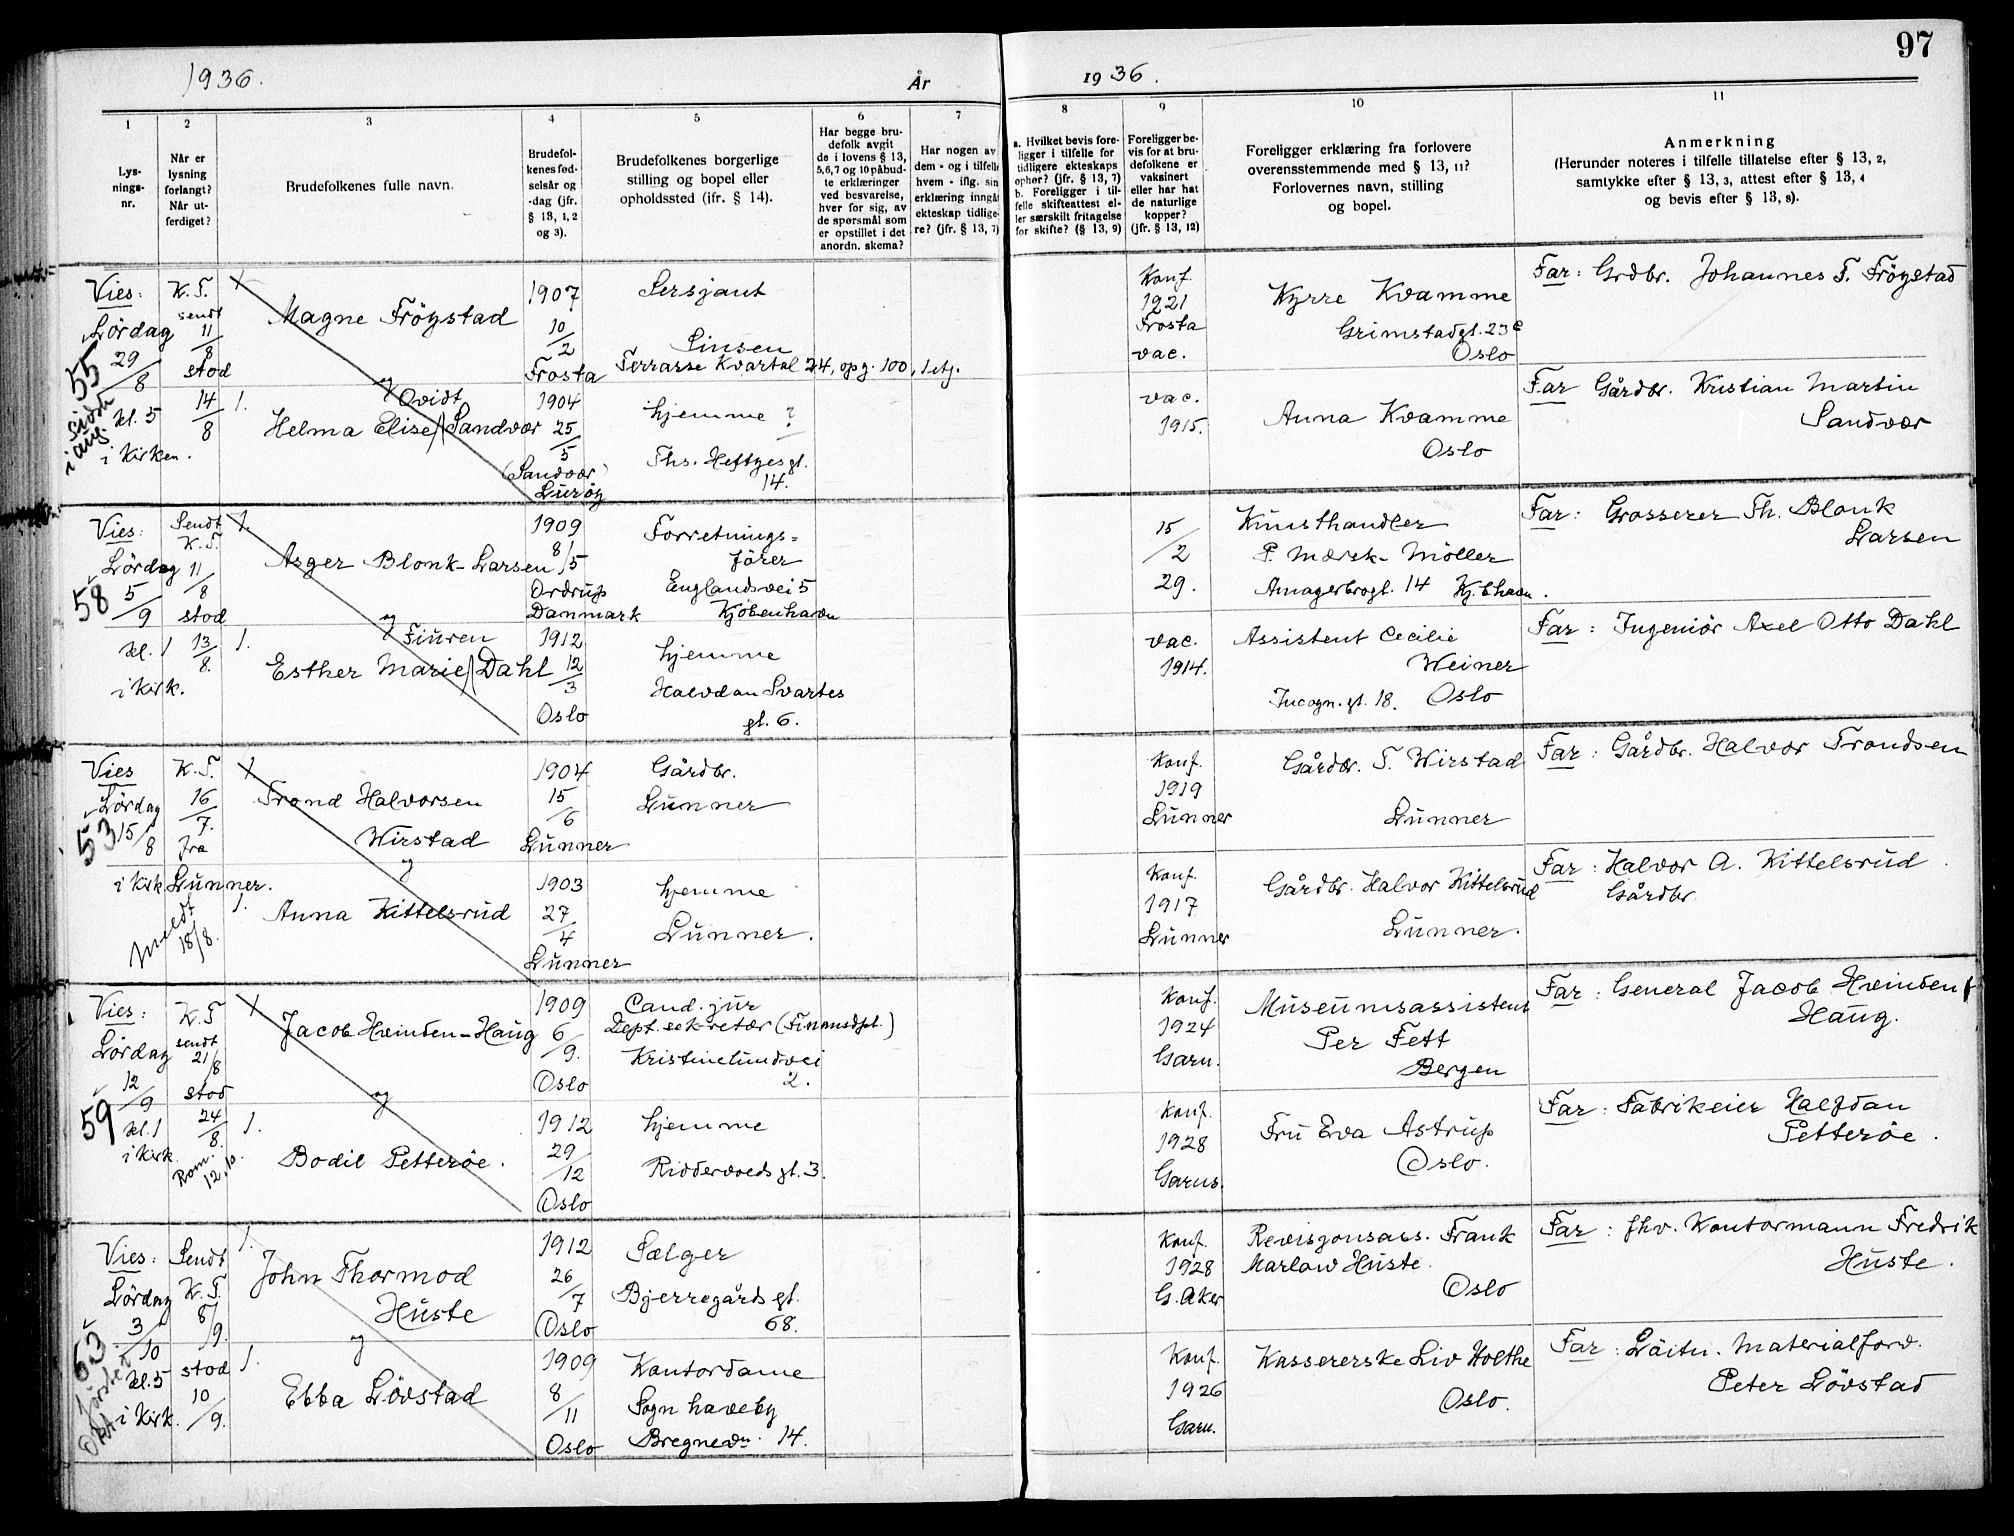 97
1936.
År
1936.
1
Lys-
nings-
nr.
2
Når er
lysning
forlangt?
Når ut-
ferdiget?
3
Brudefolkenes fulle navn.
4
Brudefol-
kenes fød-
selsår og
-dag (jfr.
§ 13, 1, 2
og 3).
5
Brudefolkenes borgerlige
stilling og bopel eller
opholdssted (ifr. § 14).
6
Har begge bru-
defolk avgit
de i lovens § 13,
5,6,7 og 10 påbud-
te erklæringer
ved besvarelse,
hver for sig, av
de spørsmål som
er opstillet i det
anordn. skema?
7
Har nogen av
dem - og i tilfelle
hvem - iflg. sin
erklæring inngå
ekteskap tidlige-
re? (jfr. § 13, 7)
8
a. Hvilket bevis fore-
ligger i tilfelle for
tidligere ekteskaps
ophør? (jfr. § 13, 7)
b. Foreligger i til-
felle skifteattest el-
ler særskilt fritagelse
for skifte? (§ 13, 9)
9
Foreligger be-
vis for at bru-
defolkene er
vaksinert
eller har hat
de naturlige
kopper?
(jfr. § 13, 12)
10
Foreligger erklæring fra forlovere
overensstemmende med § 13, 11?
Forlovernes navn, stilling
og bopel.
11
Anmerkning
(Herunder noteres i tilfelle tillatelse efter § 13, 2,
samtykke efter § 13, 3, attest efter § 13, 4
og bevis efter § 13, 8).
Vies:
Lördag
29/8
kl. 5
i Kirken.
55
sidste
i aug.
K.T.
sendt
11/8
stod
14/8
1.
Magne Fröystad
og
Qvidt
Helma Elise Sandvær
1907
10/2
Frosta
1904
25/5
(Sandvær)
Luröy
Sersjant
Sinsen
Terrasse Kvartal 24, opg. 100, 1 etg.
hjemme ?
Ths. Heftyes gt.
14.
Konf.
1921
Frosta
vac.
vac.
1915.
Kyrre Kvamme
Grimstadgt. 23 c
Oslo
Anna Kvamme
Oslo
Far: Grdbr. Johannes T. Fröystad
Far Gårdbr. Kristian Martin
Sandvær
Vies:
Lördag
5/9
kl. 1
i Kirk.
58
Sendt
K.T.
11/8
stod
13/8.
1.
1.
Asger Blonk-Larsen
og
Fiuren
Esther Marie Dahl
1909
8/5
Ordrup
Danmark
1912
12/3
Oslo
Forretnings-
förer
Englandsvei 5
Kjöbenhavn
hjemme
Halvdan Svartes
gt. 6.
15/2
29.
vac.
1914.
Kunsthandler
P. Mærsk-Möller
Amagerbrogt. 14 Kj.bhavn.
Assistent Cecilie
Weiner
Incogn. gt. 18. Oslo
Far: Grosserer Th. Blonk
Larsen
Far: Ingeniör Axel Otto Dahl
Vies
Lördag
15/8
i Kirk
53
K.T.
16/7.
fra
Lunner.
meldt
18/8.
1.
Trond Halvorsen
Wirstad
og
Anna Kittelsrud
1904
15/6
Lunner
1903
27/4
Lunner
Gårdbr.
Lunner
hjemme
Lunner.
Konf.
1919
Lunner
Konf.
1917
Lunner
Gårdbr. T. Wirstad
Lunner
Gårdbr. Halvor Kittelsrud
Lunner.
Far: Gårdbr. Halvor Trondsen
Far: Halvor A. Kittelsrud
Gårdbr.
Vies:
Lördag
12/9
kl. 1
i Kirk
59
K.T
sendt
21/8
stod
24/8.
Rom.
12.10.
1.
Jacob Hvinden-Haug
og
Bodil Petteröe.
1909
6/9.
Oslo
1912
29/12
Oslo
Cand. jur
Dept. sekretær (Finansdpt.)
Kristinelundvei
2.
hjemme
Riddervolds gt. 3.
Konf.
1924
Garn.
Konf.
1928
Garns.
Museumsassistent
Per Fett
Bergen
Fru Eva Astrup
Oslo.
Far: General Jacob Hvinden
Haug.
Far: Fabrikeier Halfdan
Petteröe.
Vies:
Lördag
3/10
kl. 5
i Kirk.
63
Sendt
K.T.
8/9.
stod
10/9.
1.
1.
John Thormod
Huste
og
Ebba Lövstad
1912
26/7
Oslo
1909
8/11
Oslo
Sælger
Bjerregårds gt.
68.
Kontordame
Sogn haveby
Bregnevn. 14.
Konf.
1928
G. Aker
Konf.
1926
Garn.
Revisjonsass. Frank
Marlow Huste.
Oslo
Kassererske Liv Holthe
Oslo.
Far: fhv. Kontormann Fredrik
Huste.
Far: Läitn. Materialforv.
Peter Lövstad